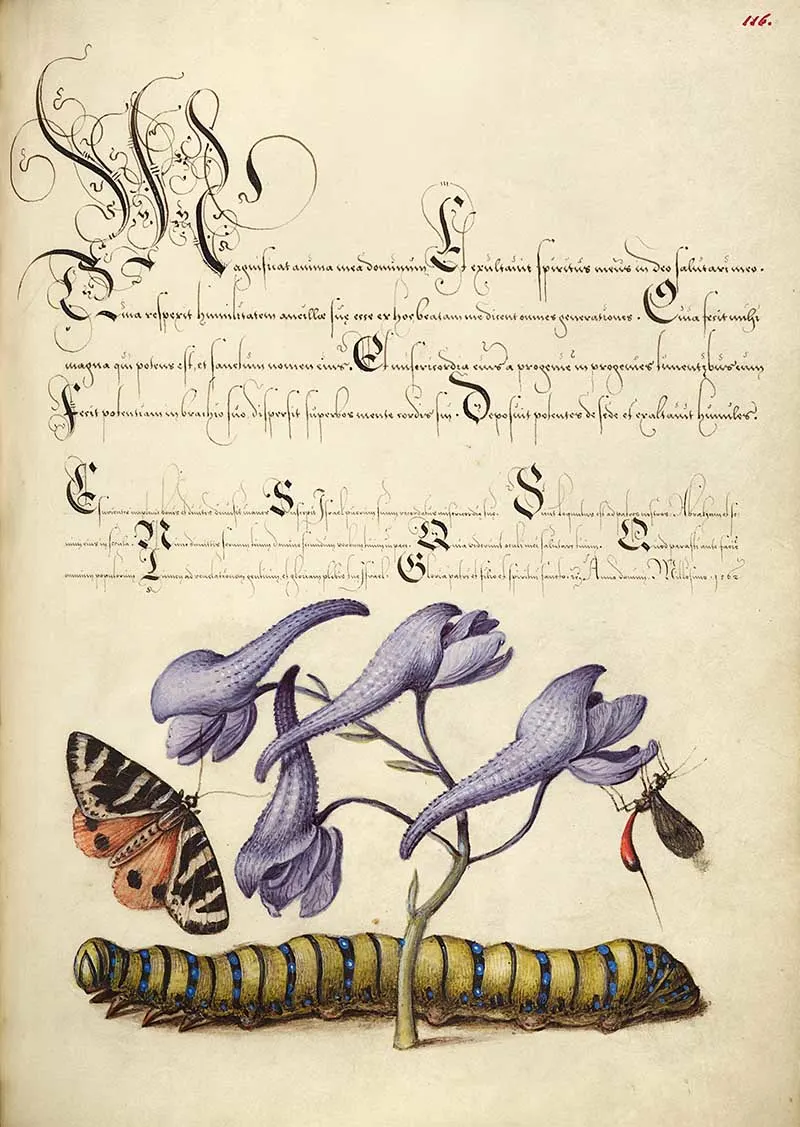 116.
Magnificat anima mea dominum. Et exultavit spiritus meus in deo salutari meo.
Quia respexit humilitatem ancillæ suę ecce ex hoc beatam me dicent omnes generationes. Quia fecit mihi
magna qui potens est, et sanctum nomen eius. Et misericordia eius a progenie in progenies timentibus eum
Fecit potentiam in brachio suo, dispersit superbos mente cordis sui. Deposuit potentes de sede et exaltavit humiles.
Esurientes implevit bonis et divites dimisit inanes. Suscepit Israel puerum suum recordatus misericordiæ suę. Sicut loquutus est ad patres nostros, Abraham et se
mini eius in secula. Nunc dimittis servum tuum domine secundum verbum tuum in pace. Quia viderunt oculi mei salutare tuum. Quod parasti ante faciē
omnium populorum. Lumen ad revelationem gentium, et gloriam plebis tuę Israel. Gloria patri et filio et spiritui sancto. Anno domini. Millesimo. 1562